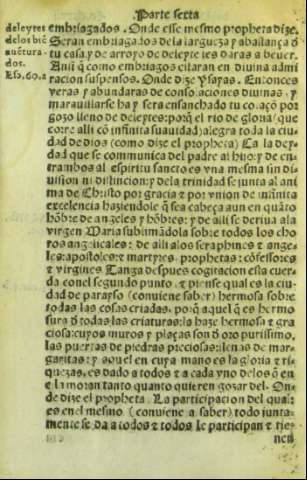 Parte sexta
deleytes
de los biē
auētura-
dos.
Esa.60.a
embriagados. Onde esse mesmo propheta dize.
Seran embriagados de la largueza y abastança ð
tu casa, y de arroyo de deleytes les daras a beuer.
Assi q̄ como embriagados estaran en diuina admi
racion suspensos. Onde dize Ysayas. Entonces
veras y abundaras de consolaciones diuinas: y
marauillarse ha y sera ensanchado tu coraçō por
gozo lleno de deleytes: porq̄ el rio de gloria (que
corre alli cō infinita suauidad) alegra toda la ciu
dad de dios (como dize el propheta) Ca la dey
dad que se communica del padre al hijo: y de en-
trambos al espiritu sancto es vna mesma sin di
uision ni distincion: y dela trinidad se junta al ani
ma de Christo por gracia: y por vnion de infinita
excelencia haziendole q̄ sea cabeça aun en quāto
hōbre de angeles y hōbres: y de alli se deriua a la
virgen Maria sublimādola sobre todos los cho
ros angelicales: de alli a los seraphines & ange
les: apostoles: & martyres: prophetas: cōfessores
& virgines Tanga despues cogitacion esta cuer
da con el segundo punto, & piense qual es la ciu-
dad de parayso (conuiene saber) hermosa sobre
todas las cosas criadas, poq̄ aquel q̄ es hermo
sura ð todas las criaturas: la haze hermosa & gra
ciosa: cuyos muros y plaças son ð oro purissimo,
las puertas de piedras preciosas: llenas de mar-
garitas: y aquel en cuya mano es la gloria & ri-
quezas, es dado a todos & a cada vno delos q̄ en
ella moran tanto quanto quieren gozar del. On-
de dize el propheta. La participacion del qual
es en el mesmo (conuiene a saber) todo junta-
mente se da a todos & todos le participan & tie-
nen